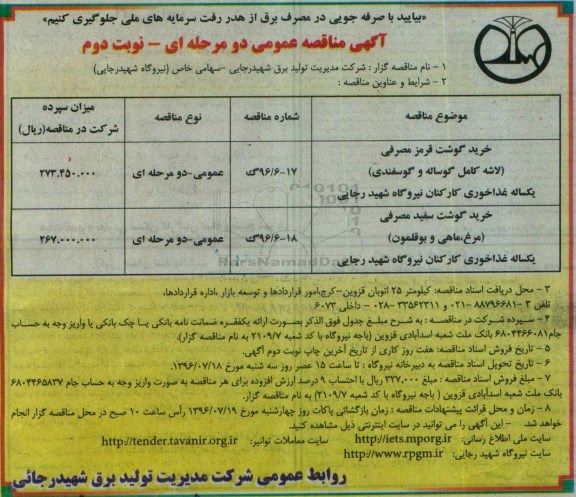 «بیایید با صرفه جویی در مصرف برق از هدر رفت سرمایه های ملی جلوگیری کنیم»
آگهی مناقصه عمومی دو مرحله ای - نوبت دوم
۱ - نام مناقصه گزار : شرکت مدیریت تولید برق شهیدرجایی -سهامی خاص (نیروگاه شهیدرجایی)
۲ - شرایط و عناوین مناقصه :
موضوع مناقصه
شماره مناقصه
نوع مناقصه
میزان سپرده
شرکت در مناقصه(ریال)
خرید گوشت قرمز مصرفی
(لاشه کامل گوساله و گوسفندی)
یکساله غذاخوری کارکنان نیروگاه شهید رجایی
۹۶/۶-۱۷ک
عمومی-دو مرحله ای
۲۷۳.۴۵۰.۰۰۰
خرید گوشت سفید مصرفی
(مرغ،ماهی و بوقلمون)
یکساله غذاخوری کارکنان نیروگاه شهید رجایی
۹۶/۶-۱۸ک
عمومی-دو مرحله ای
۲۶۷.۰۰۰.۰۰۰
ParsNamadData
۳ - محل دریافت اسناد مناقصه: کیلومتر ۲۵ اتوبان قزوین-کرج،امور قراردادها و توسعه بازار ،اداره قراردادها،
تلفن ۳ -۸۸۷۹۶۶۸۱-۰۲۱ و ۳۳۵۶۲۳۱۱ -۰۲۸ - داخلی ۶۰۷۳
۴ - سپرده شرکت در مناقصه : به شرح مبلغ جدول فوق الذکر بصورت ارائه یکفقره ضمانت نامه بانکی یا چک بانکی یا واریز وجه به حساب
جام۶۸۰۴۴۶۶۰۸۱ بانک ملت شعبه اسدآبادی قزوین (باجه نیروگاه با کد شعبه ۲۱۰۹/۷ به نام مناقصه گزار).
۵ - تاریخ فروش اسناد مناقصه: هفت روز کاری از تاریخ آخرین چاپ نوبت دوم آگهی.
۶ - تاریخ تحویل اسناد مناقصه به دبیرخانه نیروگاه : تا ساعت ۱۵ عصر روز سه شنبه مورخ ۱۳۹۶/۰۷/۱۸.
۷ - مبلغ فروش اسناد مناقصه : مبلغ ۳۲۷.۰۰۰ ریال با احتساب ۹ درصد ارزش افزوده برای هر مناقصه به صورت واریز وجه به حساب جام ۶۸۰۴۴۶۵۸۳۷
بانک ملت شعبه اسدآبادی قزوین ( باجه نیروگاه با کد شعبه ۲۱۰۹/۷) به نام مناقصه گزار.
۸ - زمان و محل قرائت پیشنهادات مناقصه : زمان بازگشائی پاکات روز چهارشنبه مورخ ۱۳۹۶/۰۷/۱۹ رأس ساعت ۱۰ صبح در محل مناقصه گزار انجام
خواهد شد. - این آگهی را می توانید در سایت اینترنتی ذیل مشاهده کنید.
سایت ملی اطلاع رسانی: http://iets.mporg.ir سایت معاملات توانیر: http://tender.tavanir.org.ir
سایت نیروگاه شهید رجایی: http://www.rpgm.ir
روابط عمومی شرکت مدیریت تولید برق شهیدرجائی